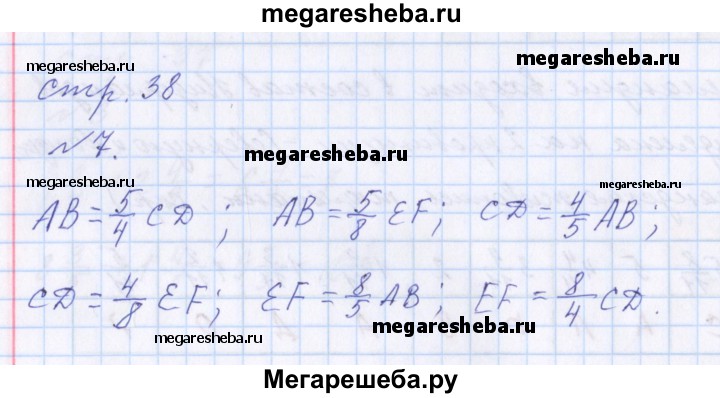 megaresheba.ru
megaresheba.ru
megaresheba.ru
стр. 38
№7.
megaresheba.ru
megaresheba.ru
megaresheba.ru
AB = 5/4 CD; AB = 5/8 EF; CD = 4/5 AB;
CD = 4/8 EF; EF = 8/5 AB; EF = 8/4 CD.
megaresheba.ru
megaresheba.ru
Мегарешеба.ру